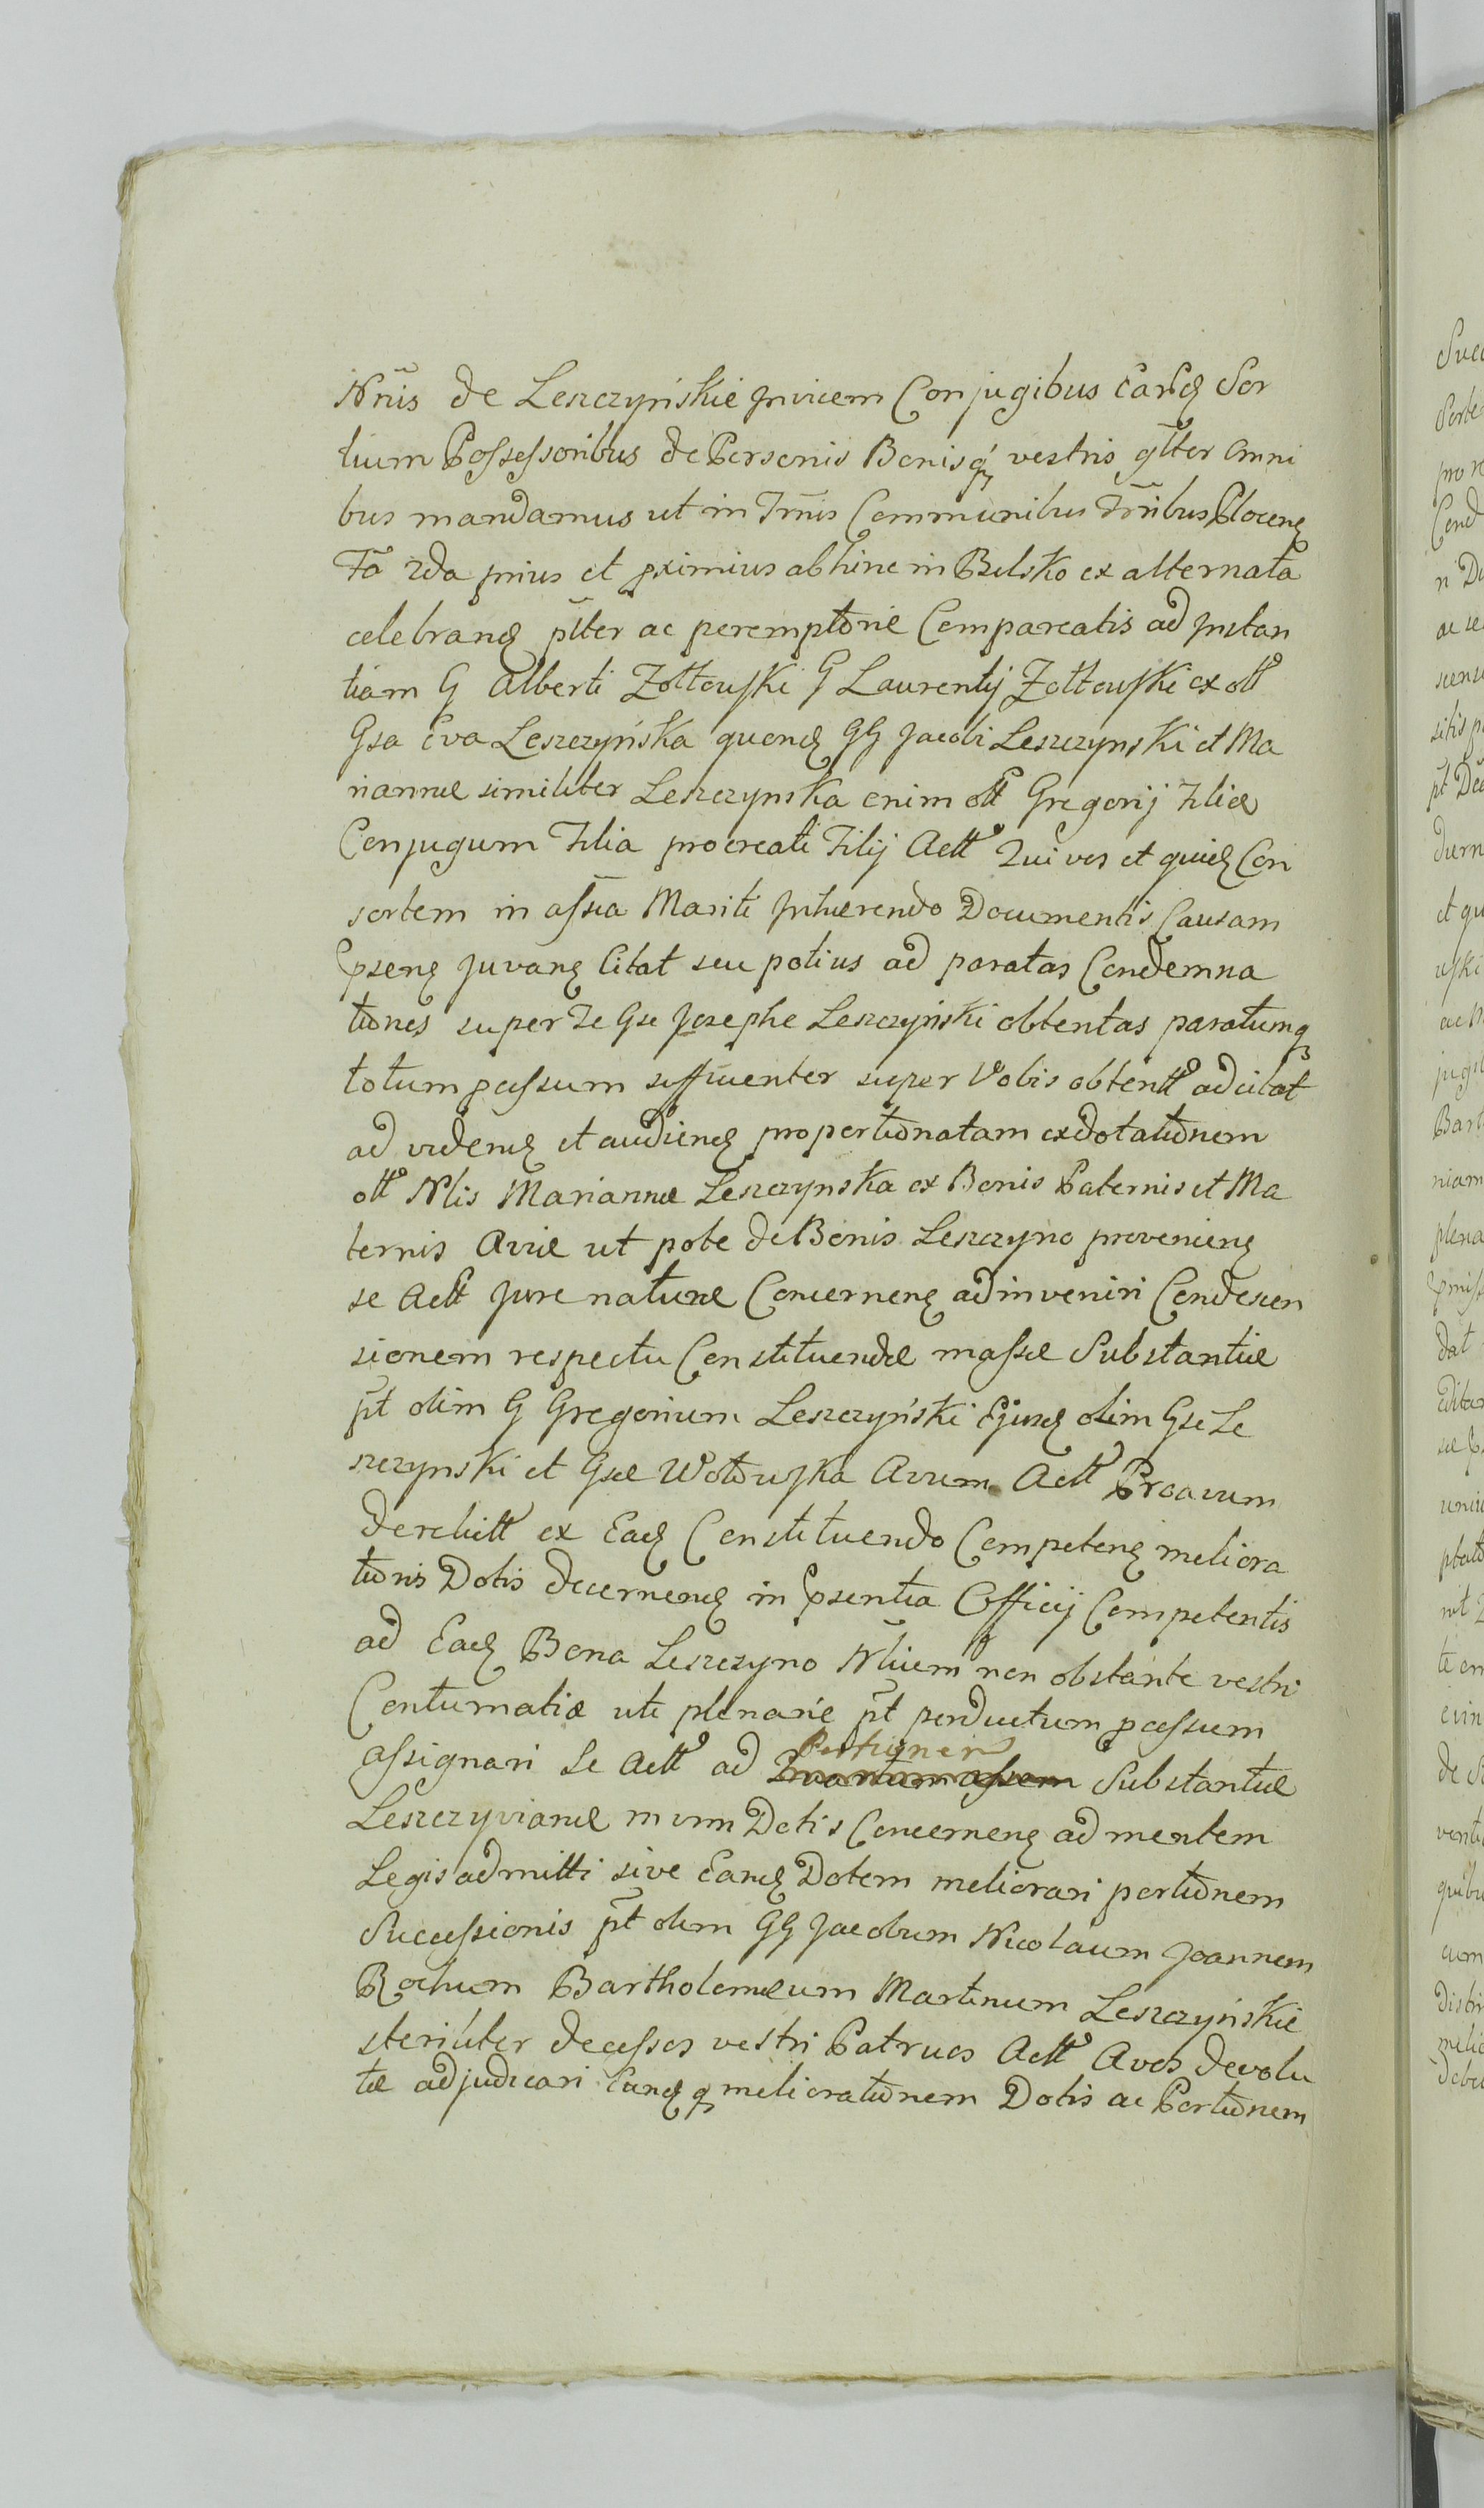 Nris de Leszczyńskie Invicem Conjugibus earūd Sor
tium Possessoribus de Personis Bonisq vestris gltter omni
bus mandamus ut in Trnis Communibus Trribus Plocen
Fā 2da prius et pximius abhinc in Bielsko ex alternata
celebrand pltter ac peremptorie Compareatis ad Instan
tiam G Alberti Zołtowski G Laurentij Zołtowski ex olt
Gsa Eva Leszczyńska quond GG Jacobi Leszczynski et Ma
riannæ similiter Leszczynska enim olt Gregorij Filiæ
Conjugum Filia procreati Filij Actt Qui vos et quid Con
sortem in assia Mariti Inhærendo Documentis Causam
psen Juvan Citat seu potius ad paratas Condemna
tiones super Te Gse Josephe Leszczyński obtentas paratumq
totum passum sufficienter super Vobis obtentt adcitat
ad vidend et audiend proportionatam exdotationem
olt Nlis Mariannæ Leszczynska ex Bonis Paternis et Ma
ternis Aviæ ut pote de Bonis Leszczyno provenien
se Actt Jure naturæ Concernen adinveniri Condescen
sionem respectu Constituendæ massæ Substantiæ
pt olim G Gregorium Leszczyński Ejusd olim Gse Le
szczynski et Gsæ Wołowska Avum Actt Proavum
derelictt ex Ead Constituendo Competen meliora
tionis Dotis decernend in psentia Officij Competentis
ad Ead Bona Leszczyno Nhiem non obstante vestri
Contumatia uti plenarie pt perductum passum
assignari Se Actt ad Portionem Substantiæ
Leszczyvianæ in vim Dotis Concernen ad mentem
Legis admitti sive Eand Dotem meliorari portionem
Successionis pt olim GG Jacobum Nicolaum Joannem
Rochum Bartholomæum Martinum Leszczyńskie
steriliter decessos vestri Patruos Actt Avos devolu
tæ adjudicari Eandq meliorationem Dotis ac Portionem